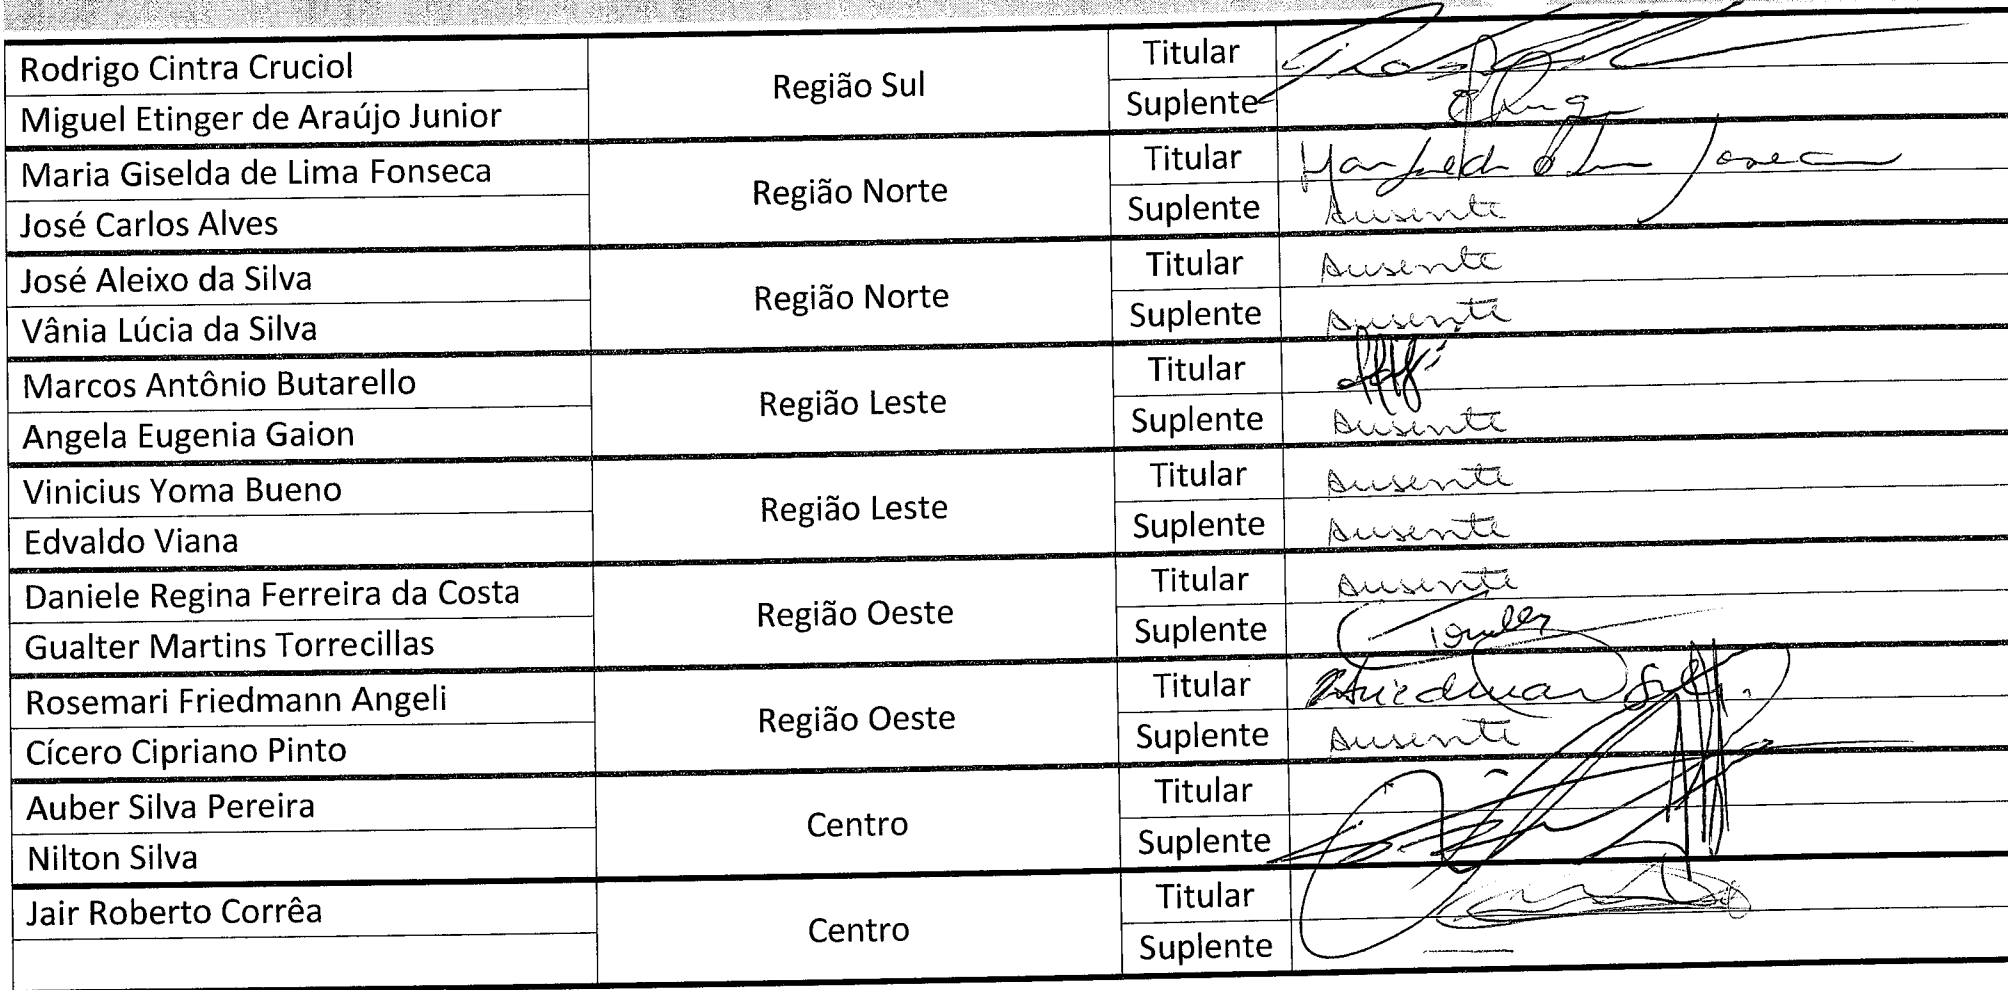 Rodrigo Cintra Cruciol Região Sul Titular
Miguel Etinger de Araújo Junior Suplente
Maria Giselda de Lima Fonseca Região Norte Titular
José Carlos Alves Suplente Ausente
José Aleixo da Silva Região Norte Titular Ausente
Vânia Lúcia da Silva Suplente Ausente
Marcos Antônio Butarello Região Leste Titular
Angela Eugenia Gaion Suplente Ausente
Vinicius Yoma Bueno Região Leste Titular Ausente
Edvaldo Viana Suplente Ausente
Daniele Regina Ferreira da Costa Região Oeste Titular Ausente
Gualter Martins Torrecillas Suplente
Rosemari Friedmann Angeli Região Oeste Titular
Cícero Cipriano Pinto Suplente Ausente
Auber Silva Pereira Centro Titular
Nilton Silva Suplente
Jair Roberto Corrêa Centro Titular
Suplente